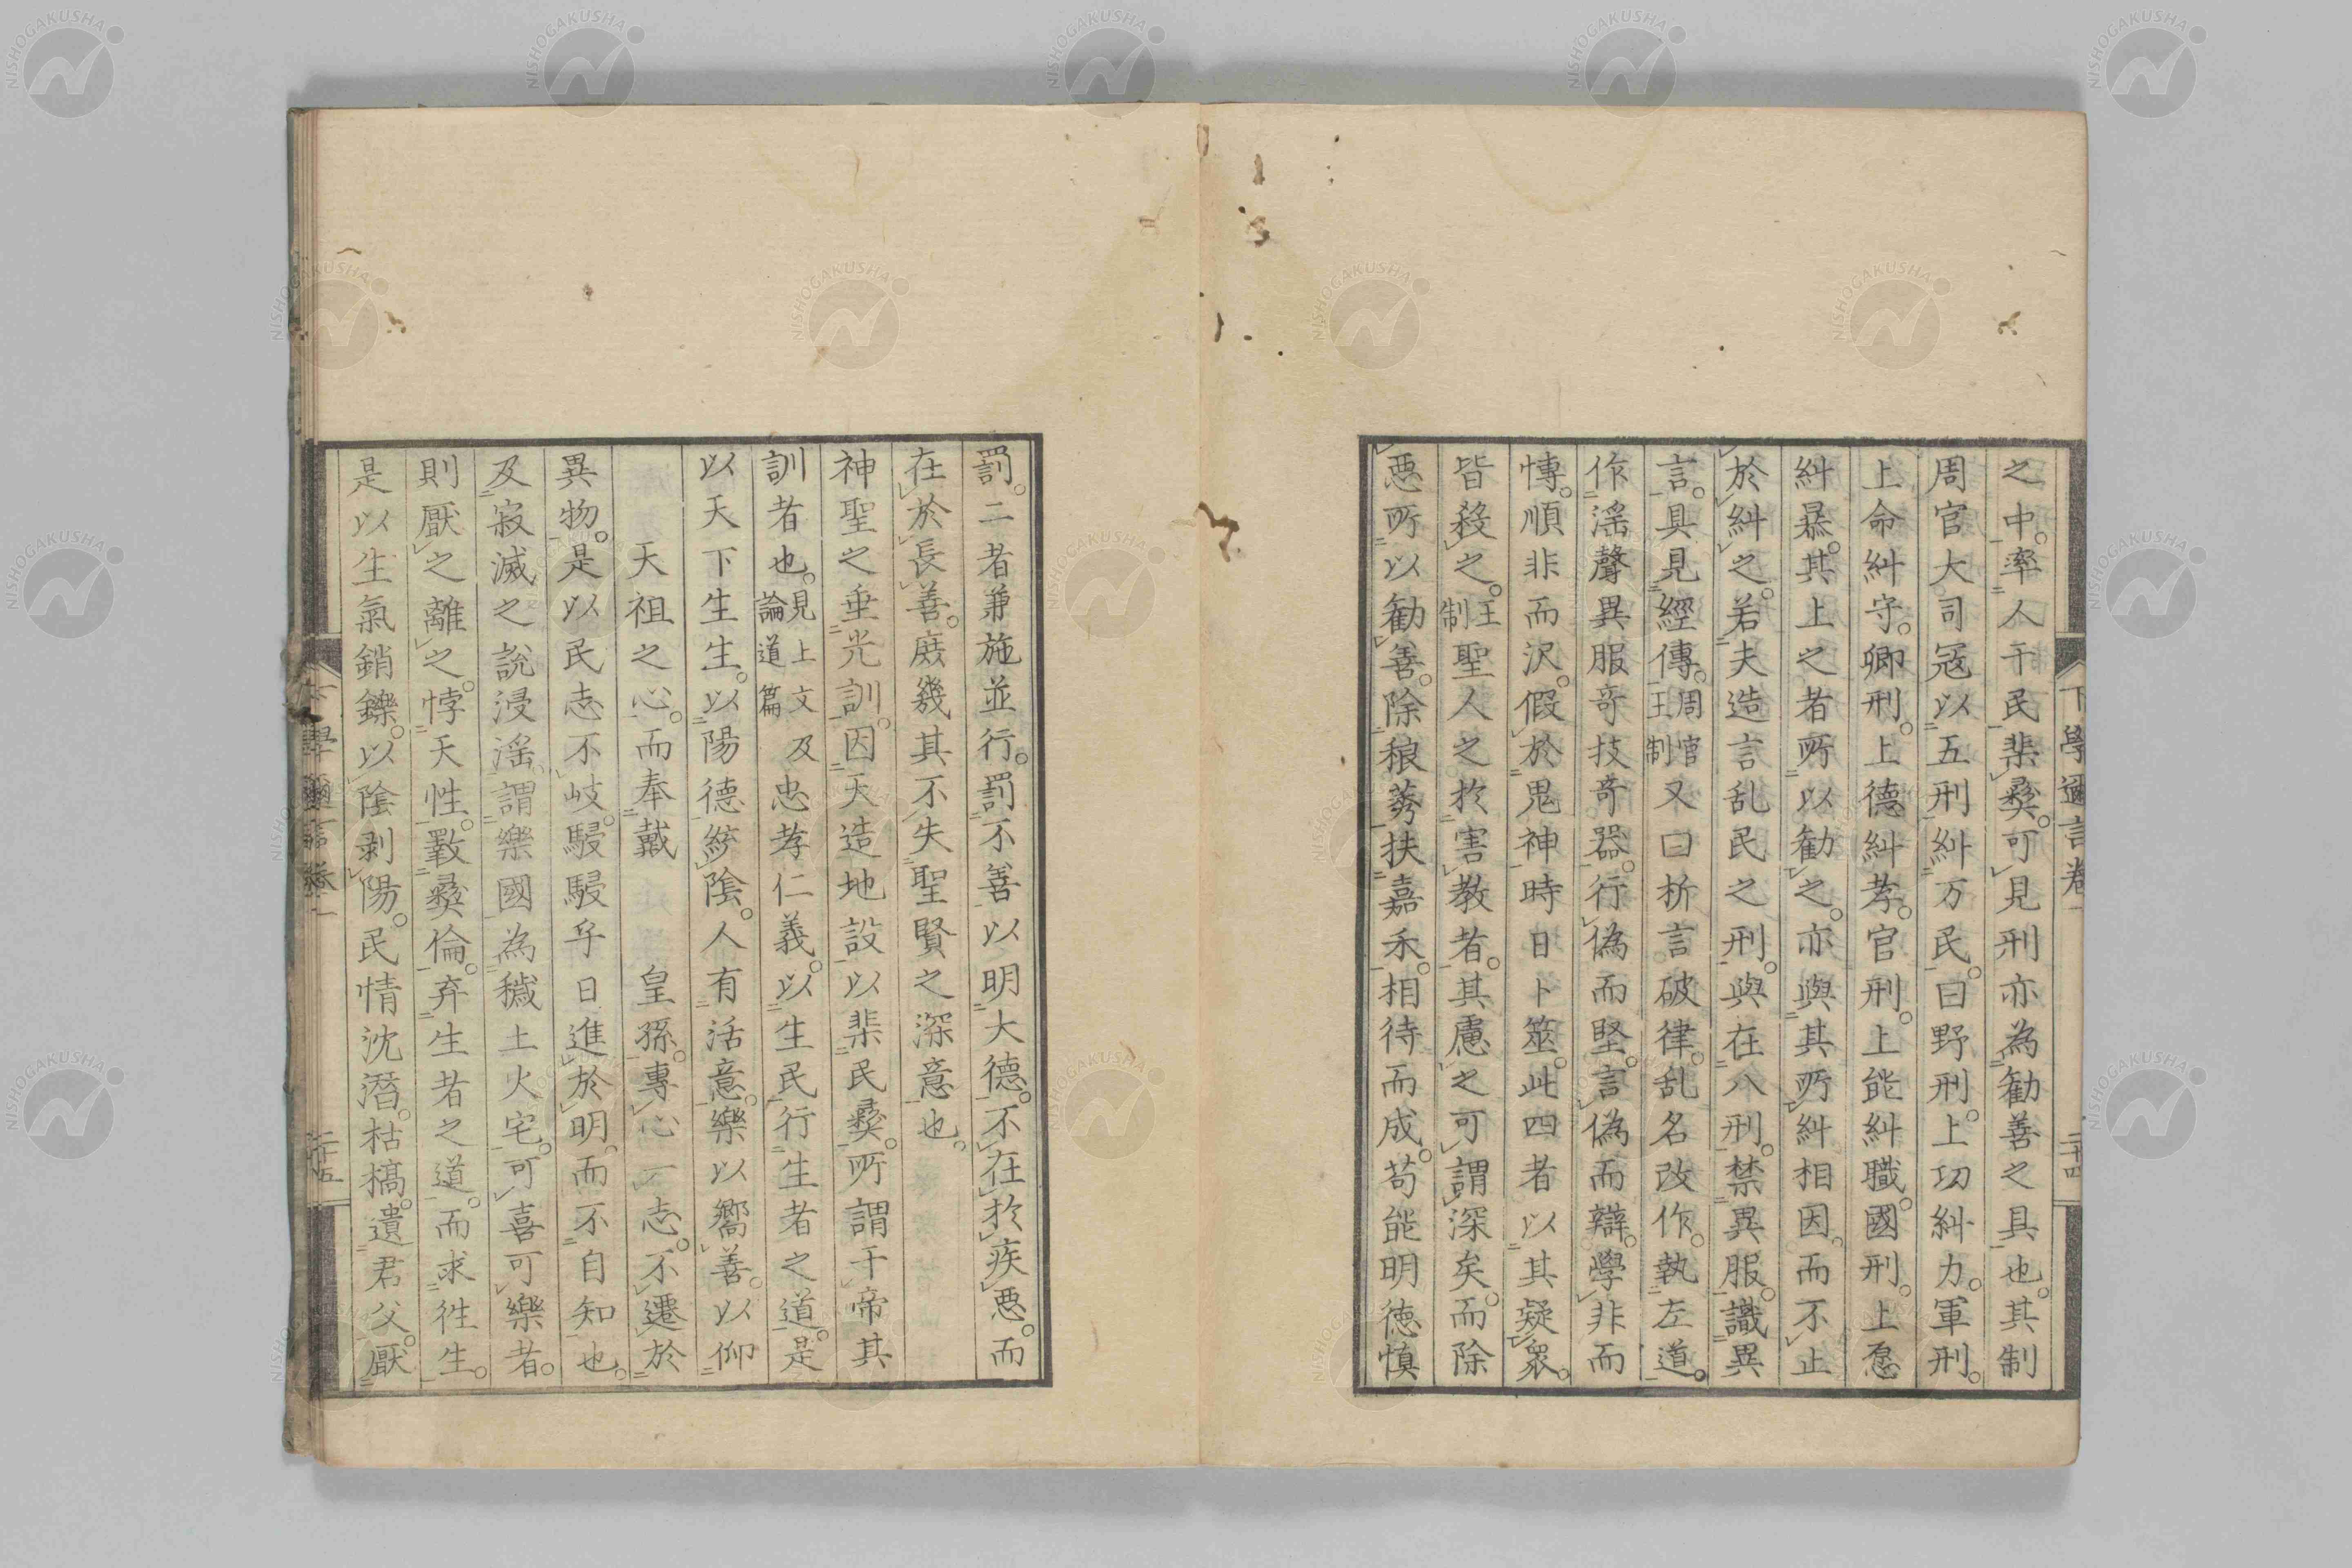 之中。率人于民棐彜。可見刑亦為勧善之具也。其制
周官大司冦以五刑糾万民。曰野刑。上功糾力。軍刑。
上命糾守。卿刑。上德糾孝。官刑。上能糾職。國刑。上愿
糾㬥。其上之者所以勧之。亦與其所糾相因。而不止
於糾之。若夫造言乱民之刑。與在八刑。禁異服。識異
言。具見經傳。周官王制又曰析言破律。乱名改作。執左道。
作滛聲異服奇技奇器。行偽而堅。言偽而辯。學非而
慱。順非而沢。假於鬼神時日卜筮。此四者以其疑衆。
皆殺之。王制聖人之於害教者。其慮之可謂深矣。而除
悪所以勧善。除稂莠扶嘉禾。相待而成。苟能明德慎
下學邇言卷一
二十四
罰。二者兼施並行。罰不善以明大德。不在於疾悪。而
在於長善。庶幾其不失聖賢之深意也。
神聖之垂光訓。因天造地設以棐民彜。所謂于帝其
訓者也。見上文論道篇及忠孝仁義。以生民行生者之道。是
以天下生生。以陽德統陰。人有活意。樂以嚮善。以仰
天祖之心。而奉戴皇孫。專心一志。不遷於
異物。是以民志不岐。駸駸乎日進於明。而不自知也。
及寂滅之說浸滛。謂樂國為穢土火宅。可喜可樂者。
則厭之離之。悖天性。斁彜倫。弃生者之道。而求徃生。
是以生氣銷鑠。以陰剥陽。民情沈潛。枯槁。遺君父。厭
下學邇言卷一
二十五
NISHOGAKUSHA